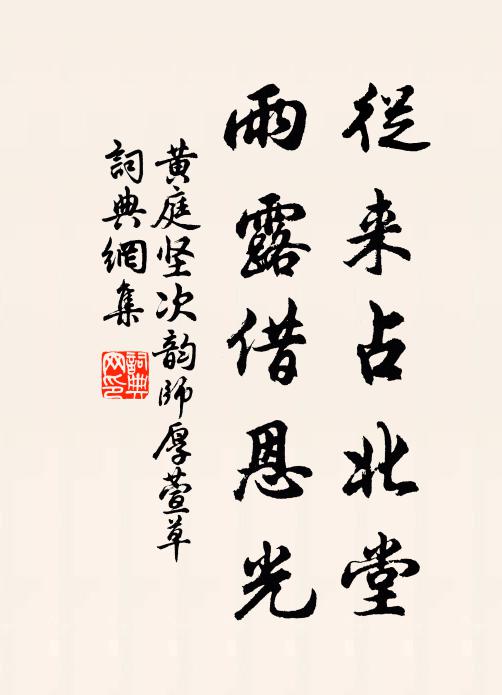 從来占北堂
雨露借恩光
黄庭坚次韵師厚萱草
詞典網集
詞典网印